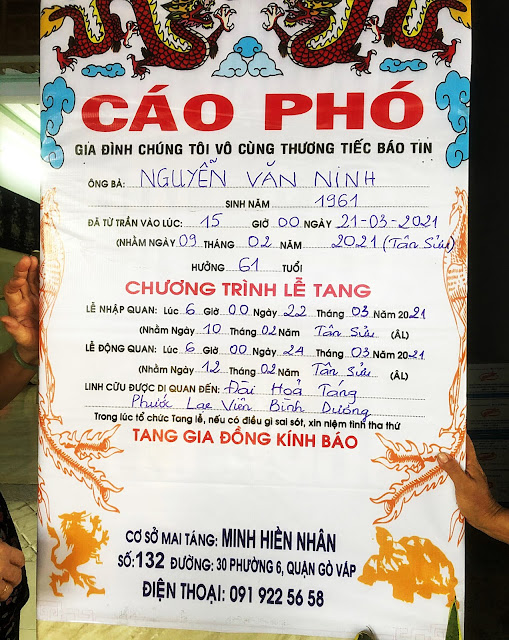 CÁO PHÓ
GIA ĐÌNH CHÚNG TÔI VÔ CÙNG THƯƠNG TIẾC BÁO TIN
ÔNG BÀ: NGUYỄN VĂN NINH
SINH NĂM 1961
ĐÃ TỪ TRẦN VÀO LÚC: 15 GIỜ 00 NGÀY 21-03-2021
(NHẰM NGÀY 09 THÁNG 02 NĂM 2021 (Tân Sửu)
HƯỞNG 61 TUỔI
CHƯƠNG TRÌNH LỄ TANG
LỄ NHẬP QUAN: Lúc 6 Giờ 00 Ngày 22 Tháng 03 Năm 2021
(Nhằm Ngày 10 Tháng 02 Năm Tân Sửu (ÂL)
LỄ ĐỘNG QUAN: Lúc 6 Giờ 00 Ngày 24 Tháng 03 Năm 2021
(Nhằm Ngày 12 Tháng 02 Năm Tân Sửu (ÂL)
LINH CỮU ĐƯỢC DI QUAN ĐẾN: Đài Hoả Táng
Phước Lạc Viên Bình Dương
Trong lúc tổ chức Tang lễ, nếu có điều gì sai sót, xin niệm tình tha thứ
TANG GIA ĐỒNG KÍNH BÁO
CƠ SỞ MAI TÁNG: MINH HIỀN NHÂN
SỐ: 132 ĐƯỜNG: 30 PHƯỜNG 6, QUẬN GÒ VẤP
ĐIỆN THOẠI: 091 922 56 58